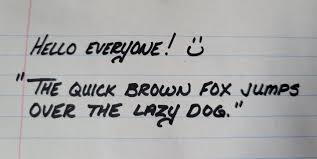 HELLO EVERYONE! ü
"THE QUICK BROWN FOX JUMPS
OVER THE LAZY DOG."